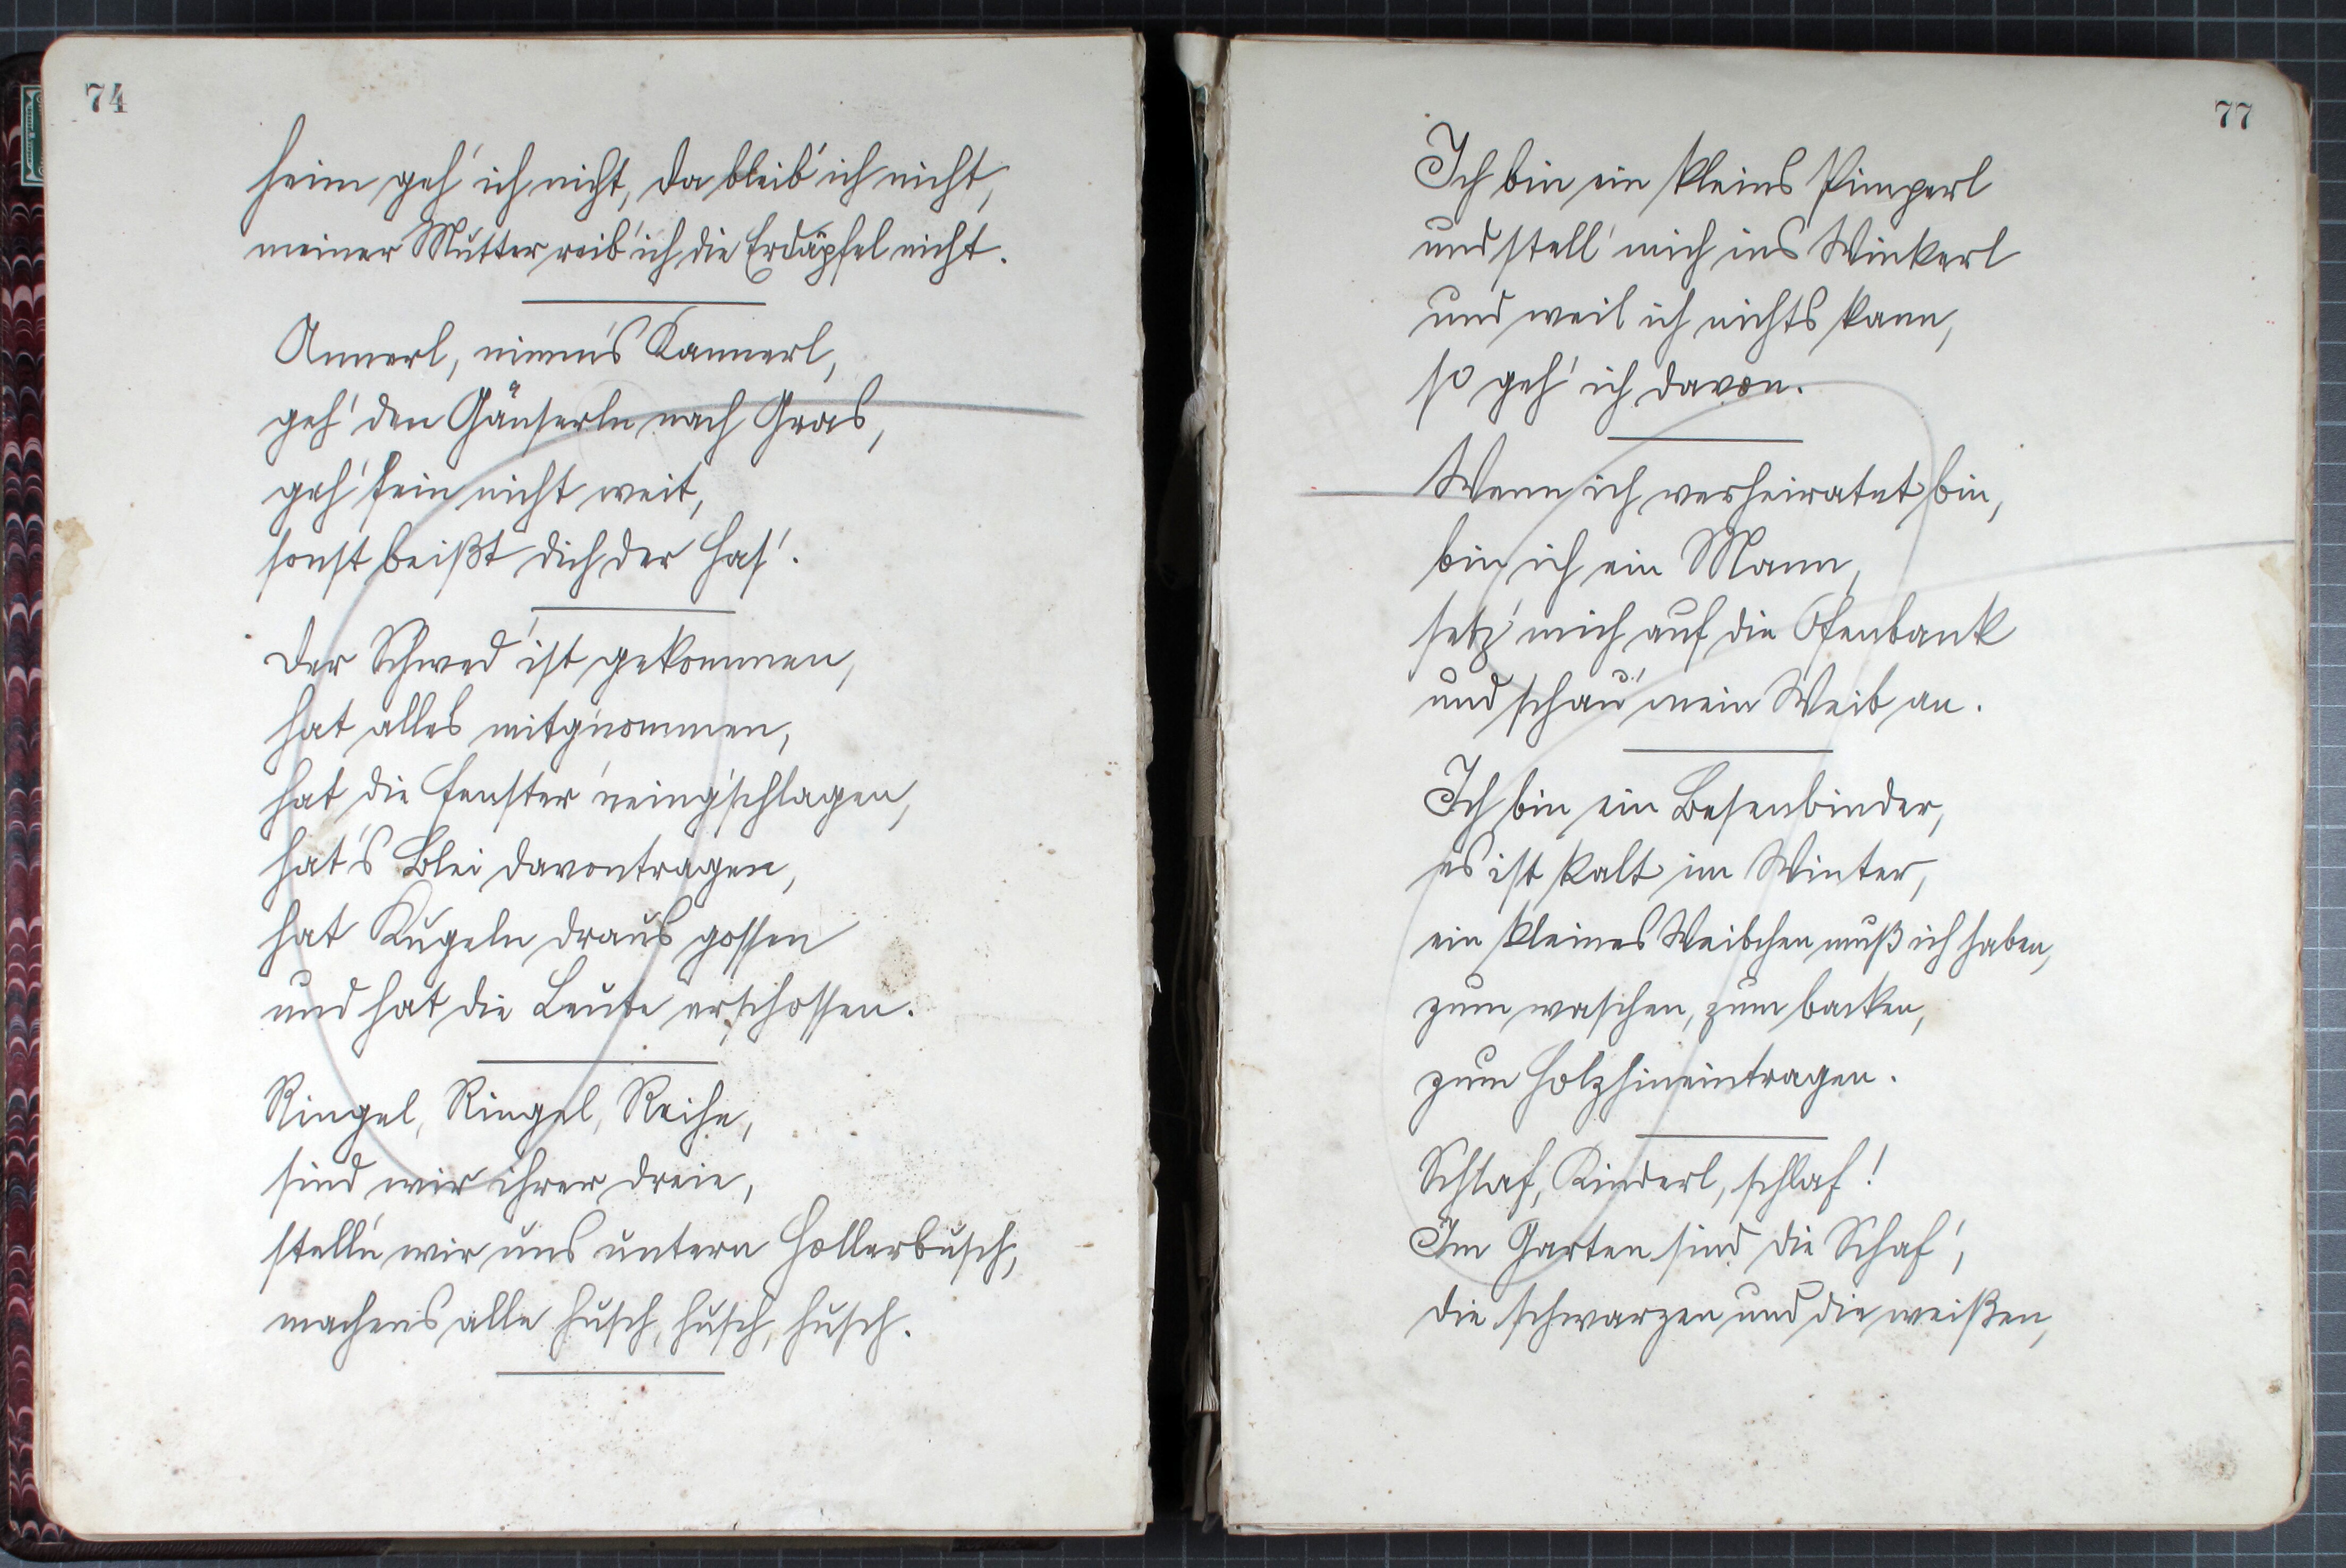 74
heim geh' ich nicht, da bleib' ich nicht,
meiner Mutter reib' ich die Erdäpfel nicht.
Annerl, nimm's Kannerl,
geh' den Gänserln nach Gras,
geh' fein nicht weit,
sonst beißt dich der Has'.
Der Schwed' ist gekommen,
hat alles mitg'nommen,
hat die Fenster 'neing'schlagen,
hat's Blei davontragen,
hat Kugeln draus gossen
und hat die Leute erschossen.
Ringel, Ringel, Reihe,
sind wir ihrer dreie,
stell'n wir uns untern Hollerbusch,
machens alle husch, husch, husch.
77
Ich bin ein kleins Pimperl
und stell' mich ins Winkerl
und weil ich nichts kann,
so geh' ich davon.
Wenn ich verheiratet bin,
bin ich ein Mann,
setz' mich auf die Ofenbank
und schau' mein Weib an.
Ich bin ein Besenbinder,
es ist kalt im Winter,
ein kleines Weibchen muß ich haben,
zum waschen, zum backen,
zum Holzhineintragen.
Schlaf, Kinderl, schlaf!
Im Garten sind die Schaf',
die schwarzen und die weißen,